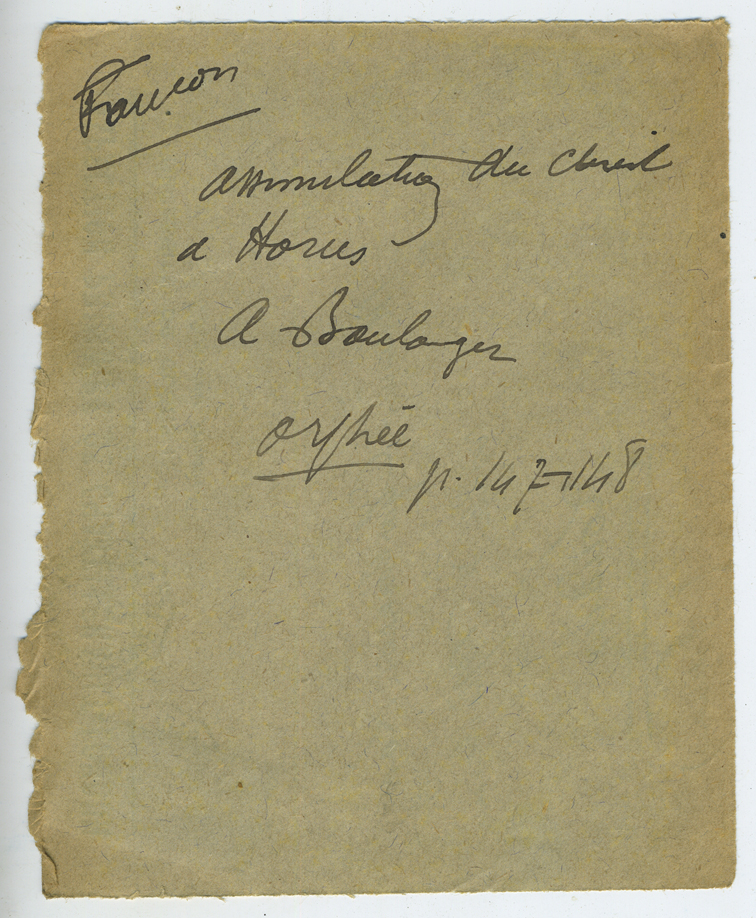 Faucon
assimilation du Christ
a Horus
A Boulanger
orphée
p. 147-148